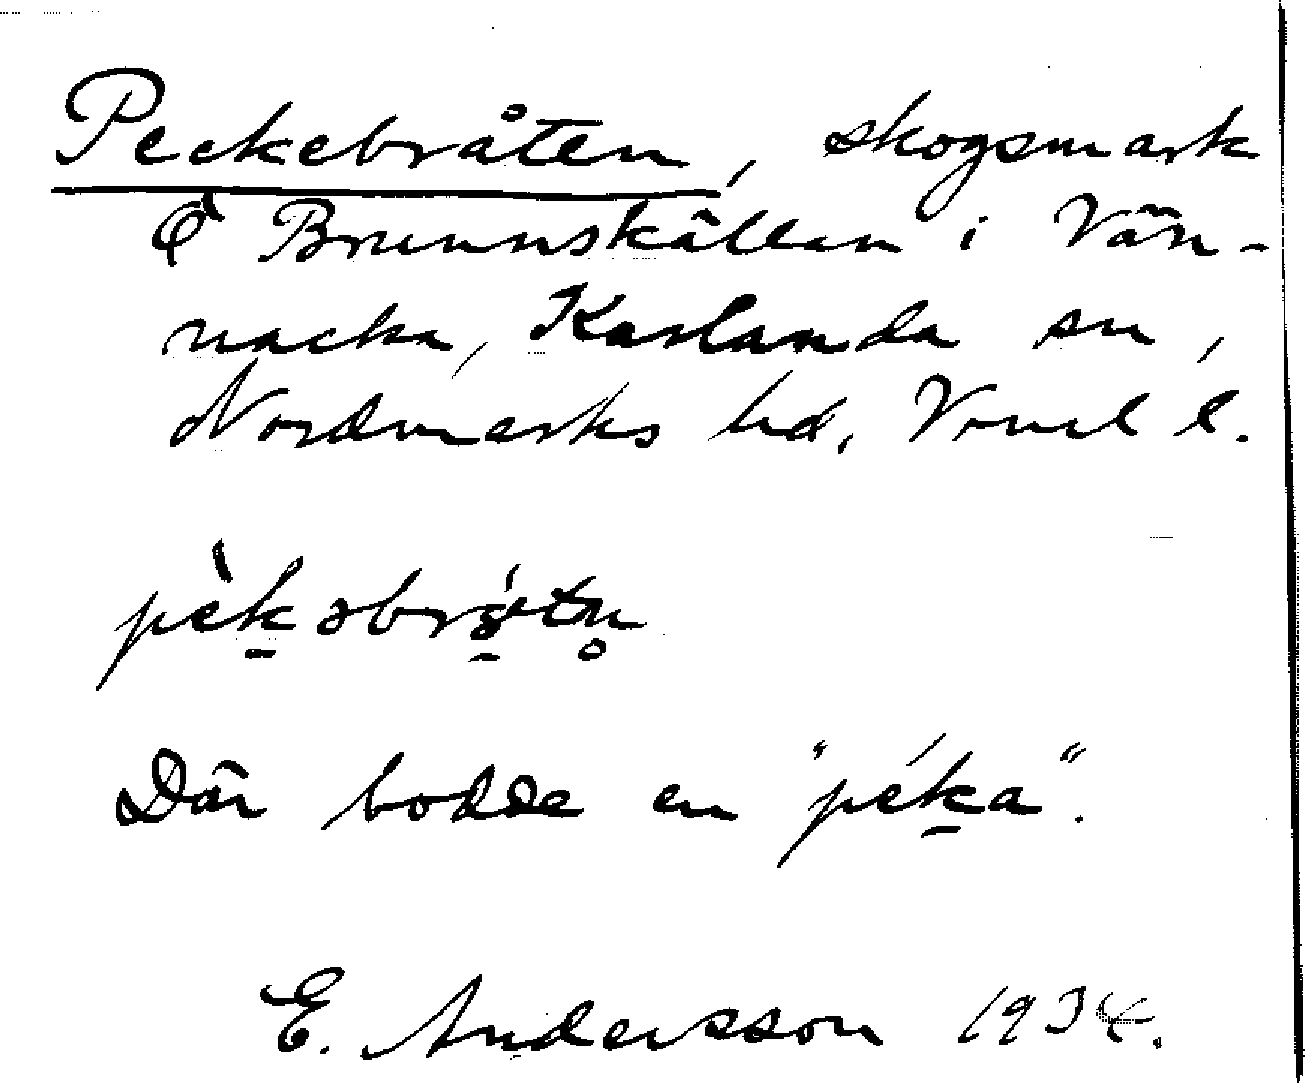 Peckebråten, skogsmark
Ö Brunnskällan i Vän-
nacka, Karlanda sn,
Nordmarks hd, Vrml l.
pèk̠əbrǿ̠tn̥
Där bodde en "pék̠a".
E. Andersson 1934.